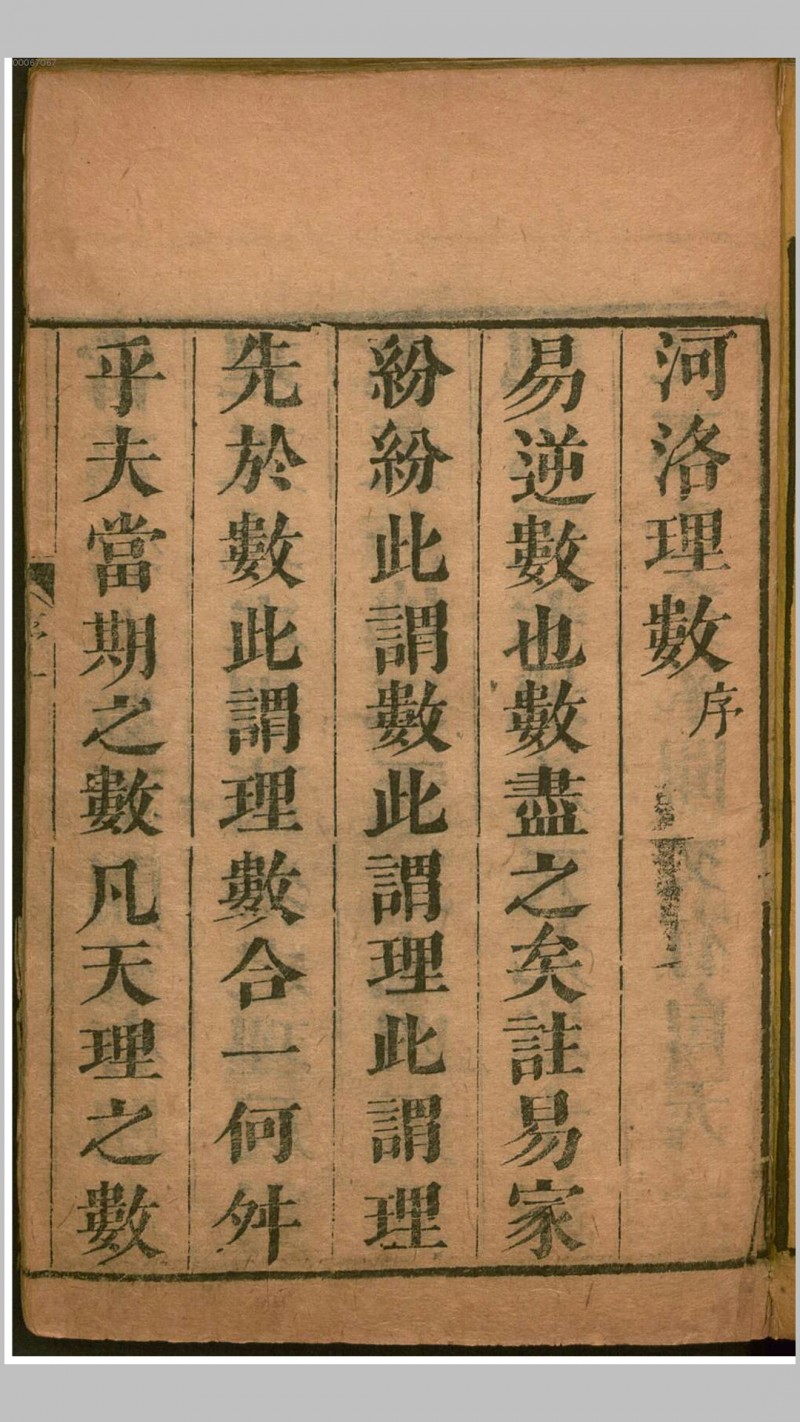 河洛理數序
易逆數也數盡之矣註易家
紛紛此謂數此謂理此謂理
先於數此謂理數合一何舛
乎夫當期之數凡天理之數
序一
00067067